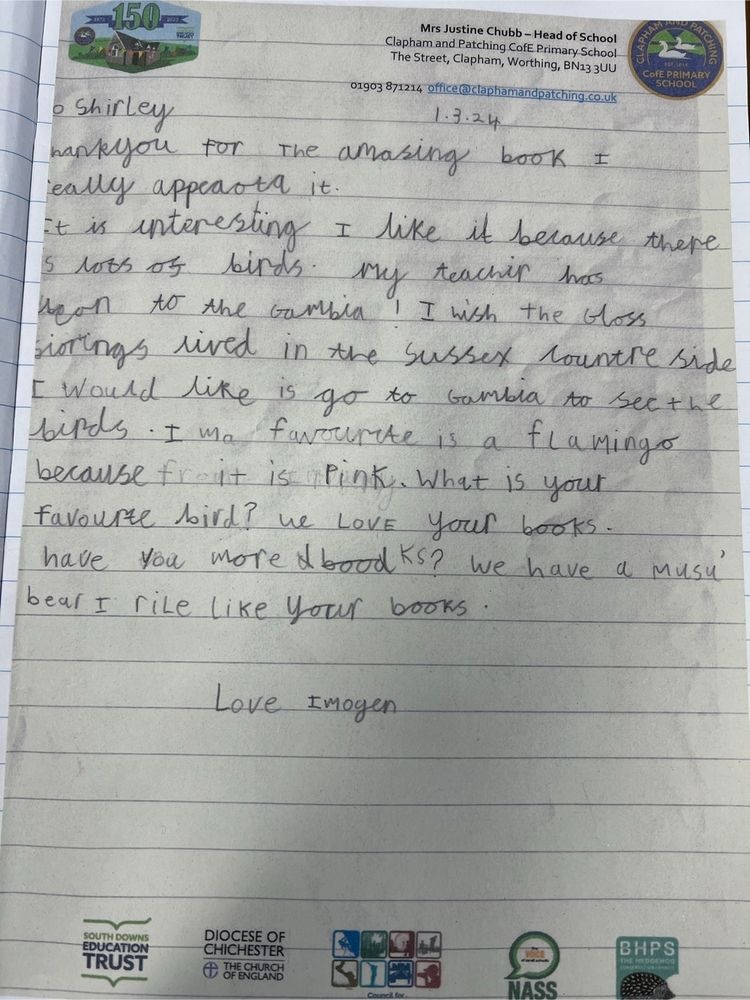 1872 150 2022
Mrs Justine Chubb – Head of School
Clapham and Patching CofE Primary School
The Street, Clapham, Worthing, BN13 3UU
01903 871214 office@claphamandpatching.co.uk
CLAPHAM AND PATCHING
CofE PRIMARY
SCHOOL
o Shirley 1.3.24
hankyou for The amasing book I
eally appeaota it.
It is interesting I like it because there
s lots of birds. My teachir has
to the Gambia! I wish the Gloss
siorings lived in the Sussex countre side
I would like is go to Gambia to see the
birds. I ma favourite is a flamingo
because it is Pink. What is your
favourite bird? We LOVE your books.
have you more books? We have a musu'
bear I rile like your books.
Love Imogen
SOUTH DOWNS
EDUCATION
TRUST
DIOCESE OF
CHICHESTER
THE CHURCH
OF ENGLAND
Council for
VOICE
NASS
BHPS
THE HEDGEHOG